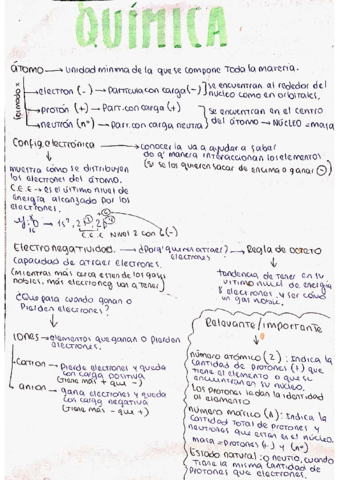 QUÍMICA
átomo → unidad minma de la que se compone toda la materia.
formado x
electron (-) → Particula con carga (-)
se encuentran al rededor del
núcleo como en orbitales.
protón (+) → Part. con carga (+)
neutrón (n°) → Part. con carga neutra
se encuentran en el centro
del átomo → NÚCLEO = masa
Config. electrónica
muestra como se distribuyen
los electrones del átomo.
C.E.E → es el ultimo nivel de
energía alcanzado por los
electrones.
ej: O → 1s², 2s², 2p⁴
C.E.E NIVEL 2 CON 6(-)
conocerla va a ayudar a saber
de q' manera interaccionan los elementos
(si se los quieren sacar de encima o ganar (-))
Electronegatividad.
capacidad de atraer electrones.
(mientras más cerca esten de los gases
nobles, más electroneg van a tener)
→ ¿Por q' quieren atraer
electrones?
→ Regla de octeto
tendencia de tener en su
ultimo nivel de energía
8 electrones, y ser como
un gas noble.
¿Que pasa cuando ganan o
Pierden electrones?
IONES → elementos que ganan o pierden
electrones.
cation → Pierde electrones y queda
con carga positiva
(tiene más + que -)
anion → gana electrones y queda
con carga negativa
(tiene más - que +)
Relevante/importante
número atómico (Z): Indica la
cantidad de protones (+) que
tiene el elemento o que se
encuentran en su núcleo.
Los protones le dan la identidad
al elemento
número másico (A): Indica la
cantidad total de protones y
neutrones que estan en el núcleo.
masa = protones (+) y (n°)
Estado natural: o neutro, cuando
tiene la misma cantidad de
Protones que electrones.